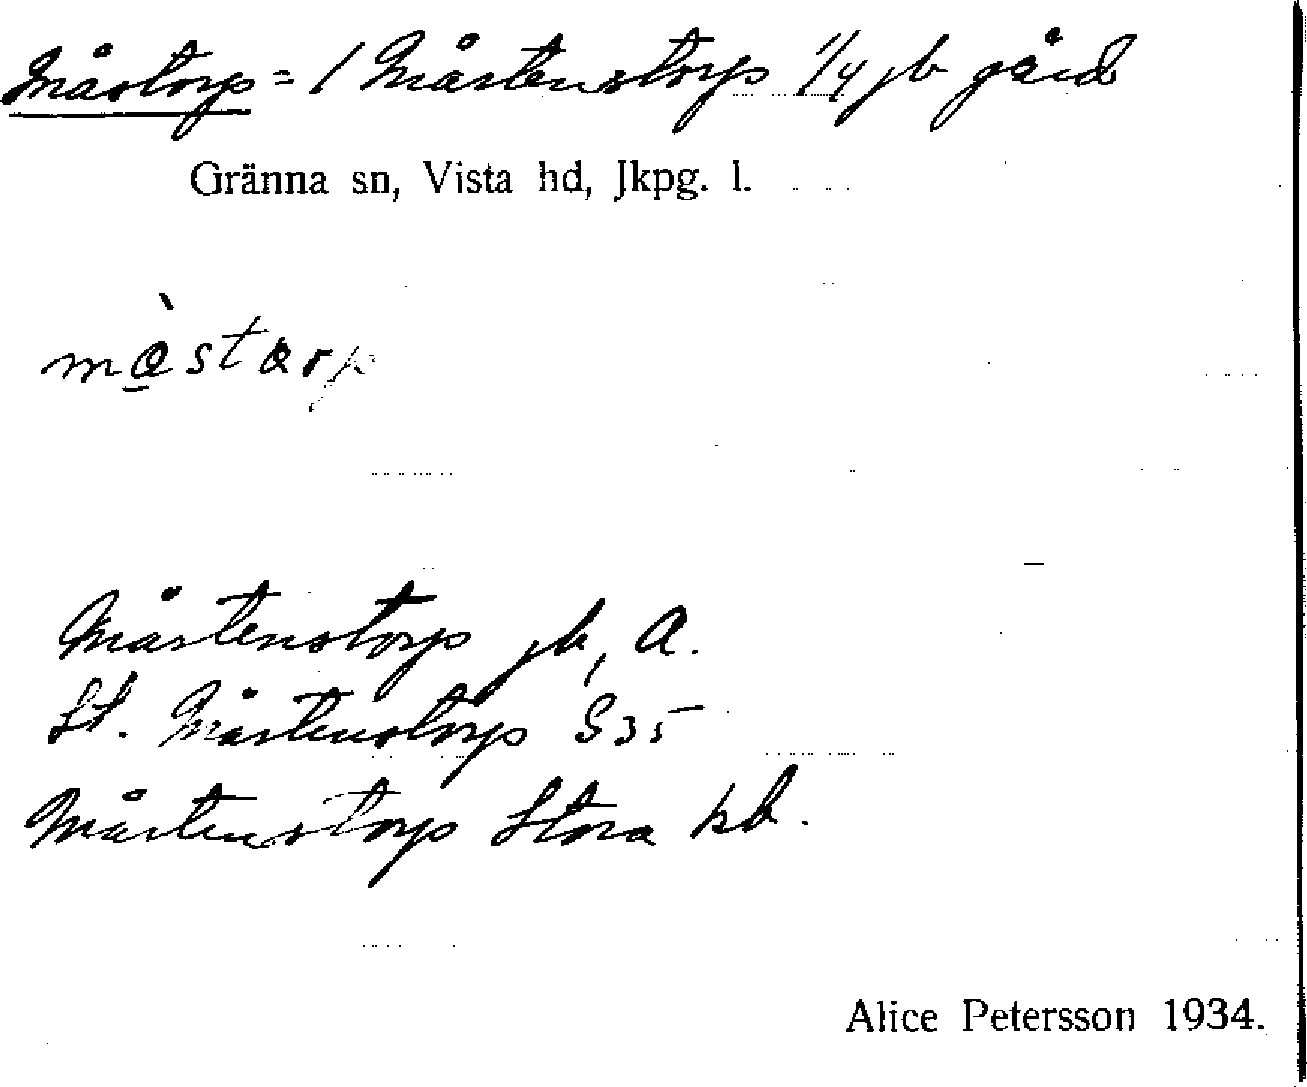 Måstorp = / Mårtenstorp 1/4 jb gård
Gränna sn, Vista hd, Jkpg. l.
Mårtenstorp jb, A.
St. Mårtenstorp S35
Mårtenstorp Stora kb.
Alice Petersson 1934.